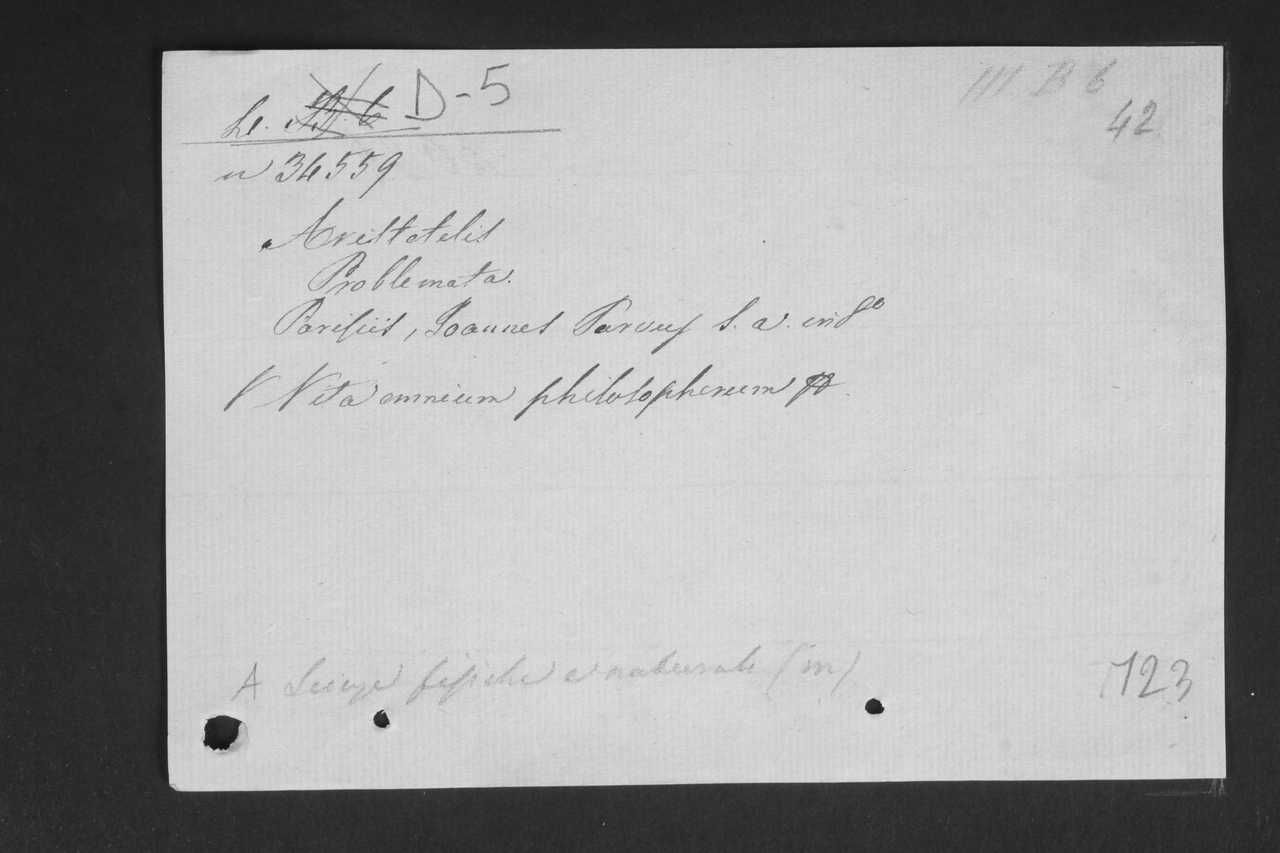 D-5
III B 6
42
n 34559
Aristotelis
Problemata.
Parisiis, Joannes Parvus s. a. in 8º
V Vita omnium philosophorum
A Scienze fisiche e naturali (in)
123